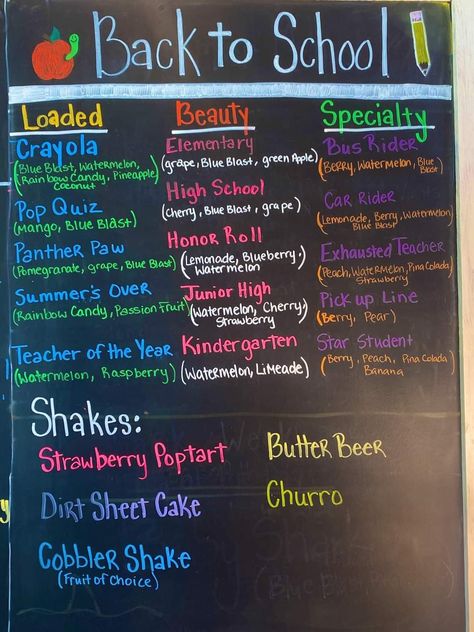 Back to School
Loaded
Crayola
(Blue Blast, Watermelon,
Rainbow Candy, Pineapple
Coconut)
Pop Quiz
(Mango, Blue Blast)
Panther Paw
(Pomegranate, grape, Blue Blast)
Summer's Over
(Rainbow Candy, Passion Fruit)
Teacher of the Year
(Watermelon, Raspberry)
Beauty
Elementary
(grape, Blue Blast, green Apple)
High School
(Cherry, Blue Blast, grape)
Honor Roll
(Lemonade, Blueberry,
Watermelon)
Junior High
(Watermelon, Cherry,
Strawberry)
Kindergarten
(Watermelon, Limeade)
Specialty
Bus Rider
(Berry, Watermelon, Blue
Blast)
Car Rider
(Lemonade, Berry, Watermelon
Blue Blast)
Exhausted Teacher
(Peach, Watermelon, Pina Colada
Strawberry)
Pick up Line
(Berry, Pear)
Star Student
(Berry, Peach, Pina Colada
Banana)
Shakes:
Strawberry Poptart
Dirt Sheet Cake
Cobbler Shake
(Fruit of Choice)
Butter Beer
Churro